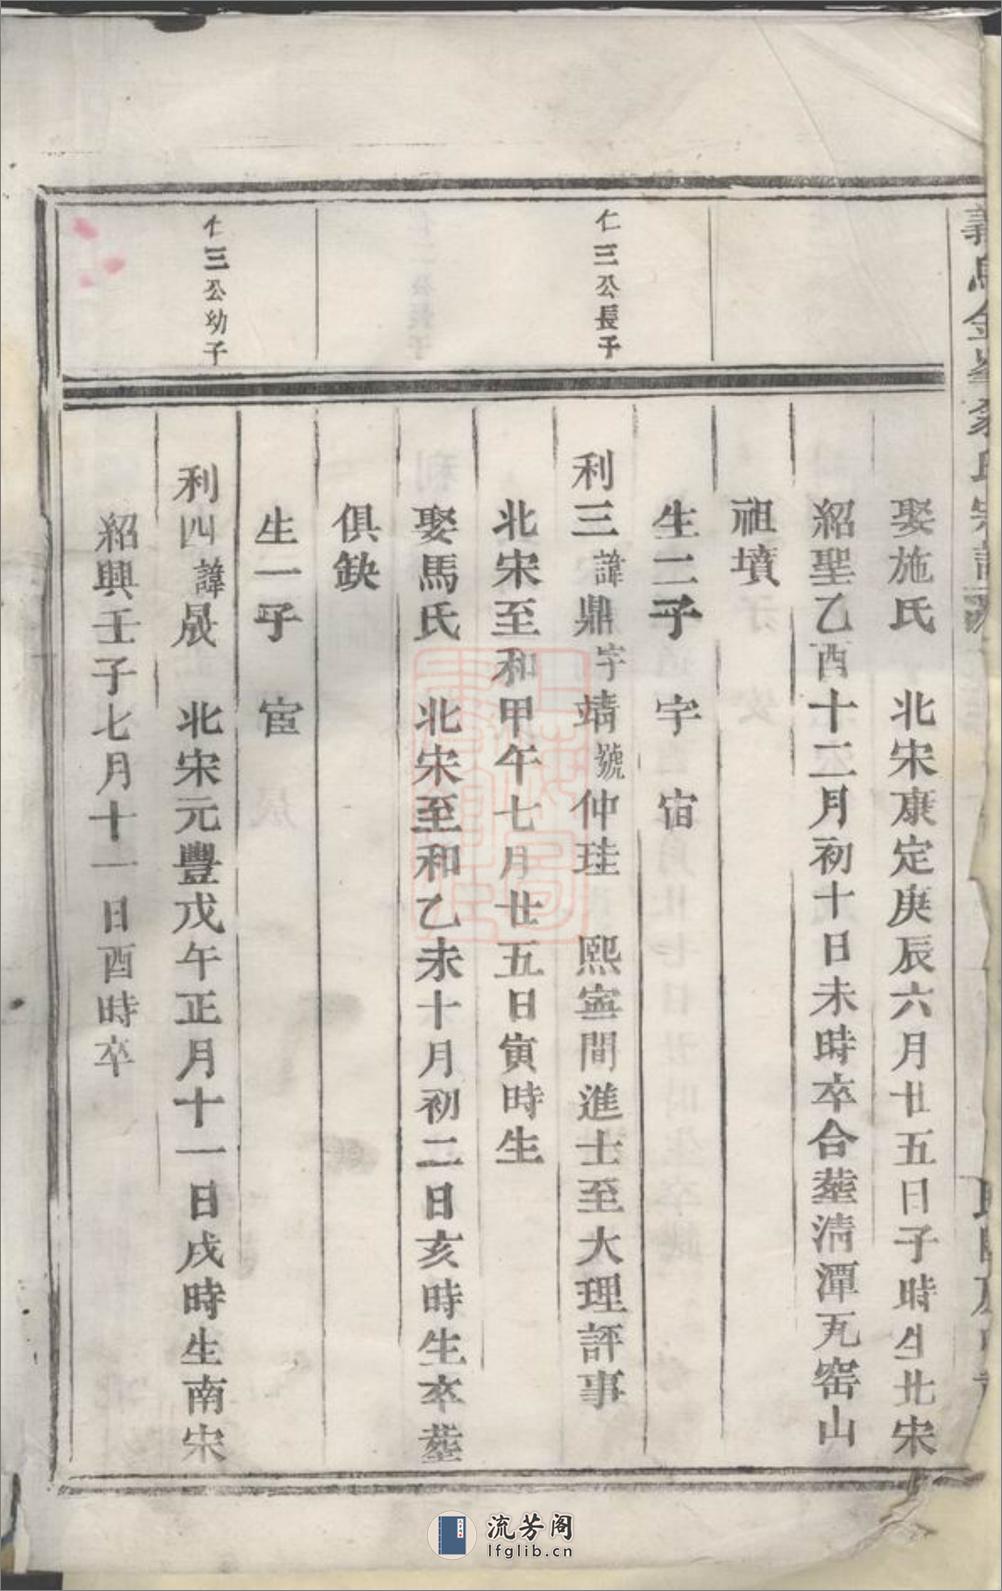 娶施氏 北宋康定庚辰六月廿五日子時生北宋
紹聖乙酉十二月初十日未時卒合塟清潭瓦窑山
祖墳
生二子 宇 宿
仁三公長子
利三諱鼎字靖號仲珪 熙寧間進士至大理評事
北宋至和甲午七月廿五日寅時生
娶馬氏 北宋至和乙未十月初二日亥時生卒塟
俱缺
生一子 宦
仁三公幼子
利四諱晟 北宋元豐戊午正月十一日戌時生南宋
紹興壬子七月十一日酉時卒
流芳阁
lfglib.cn